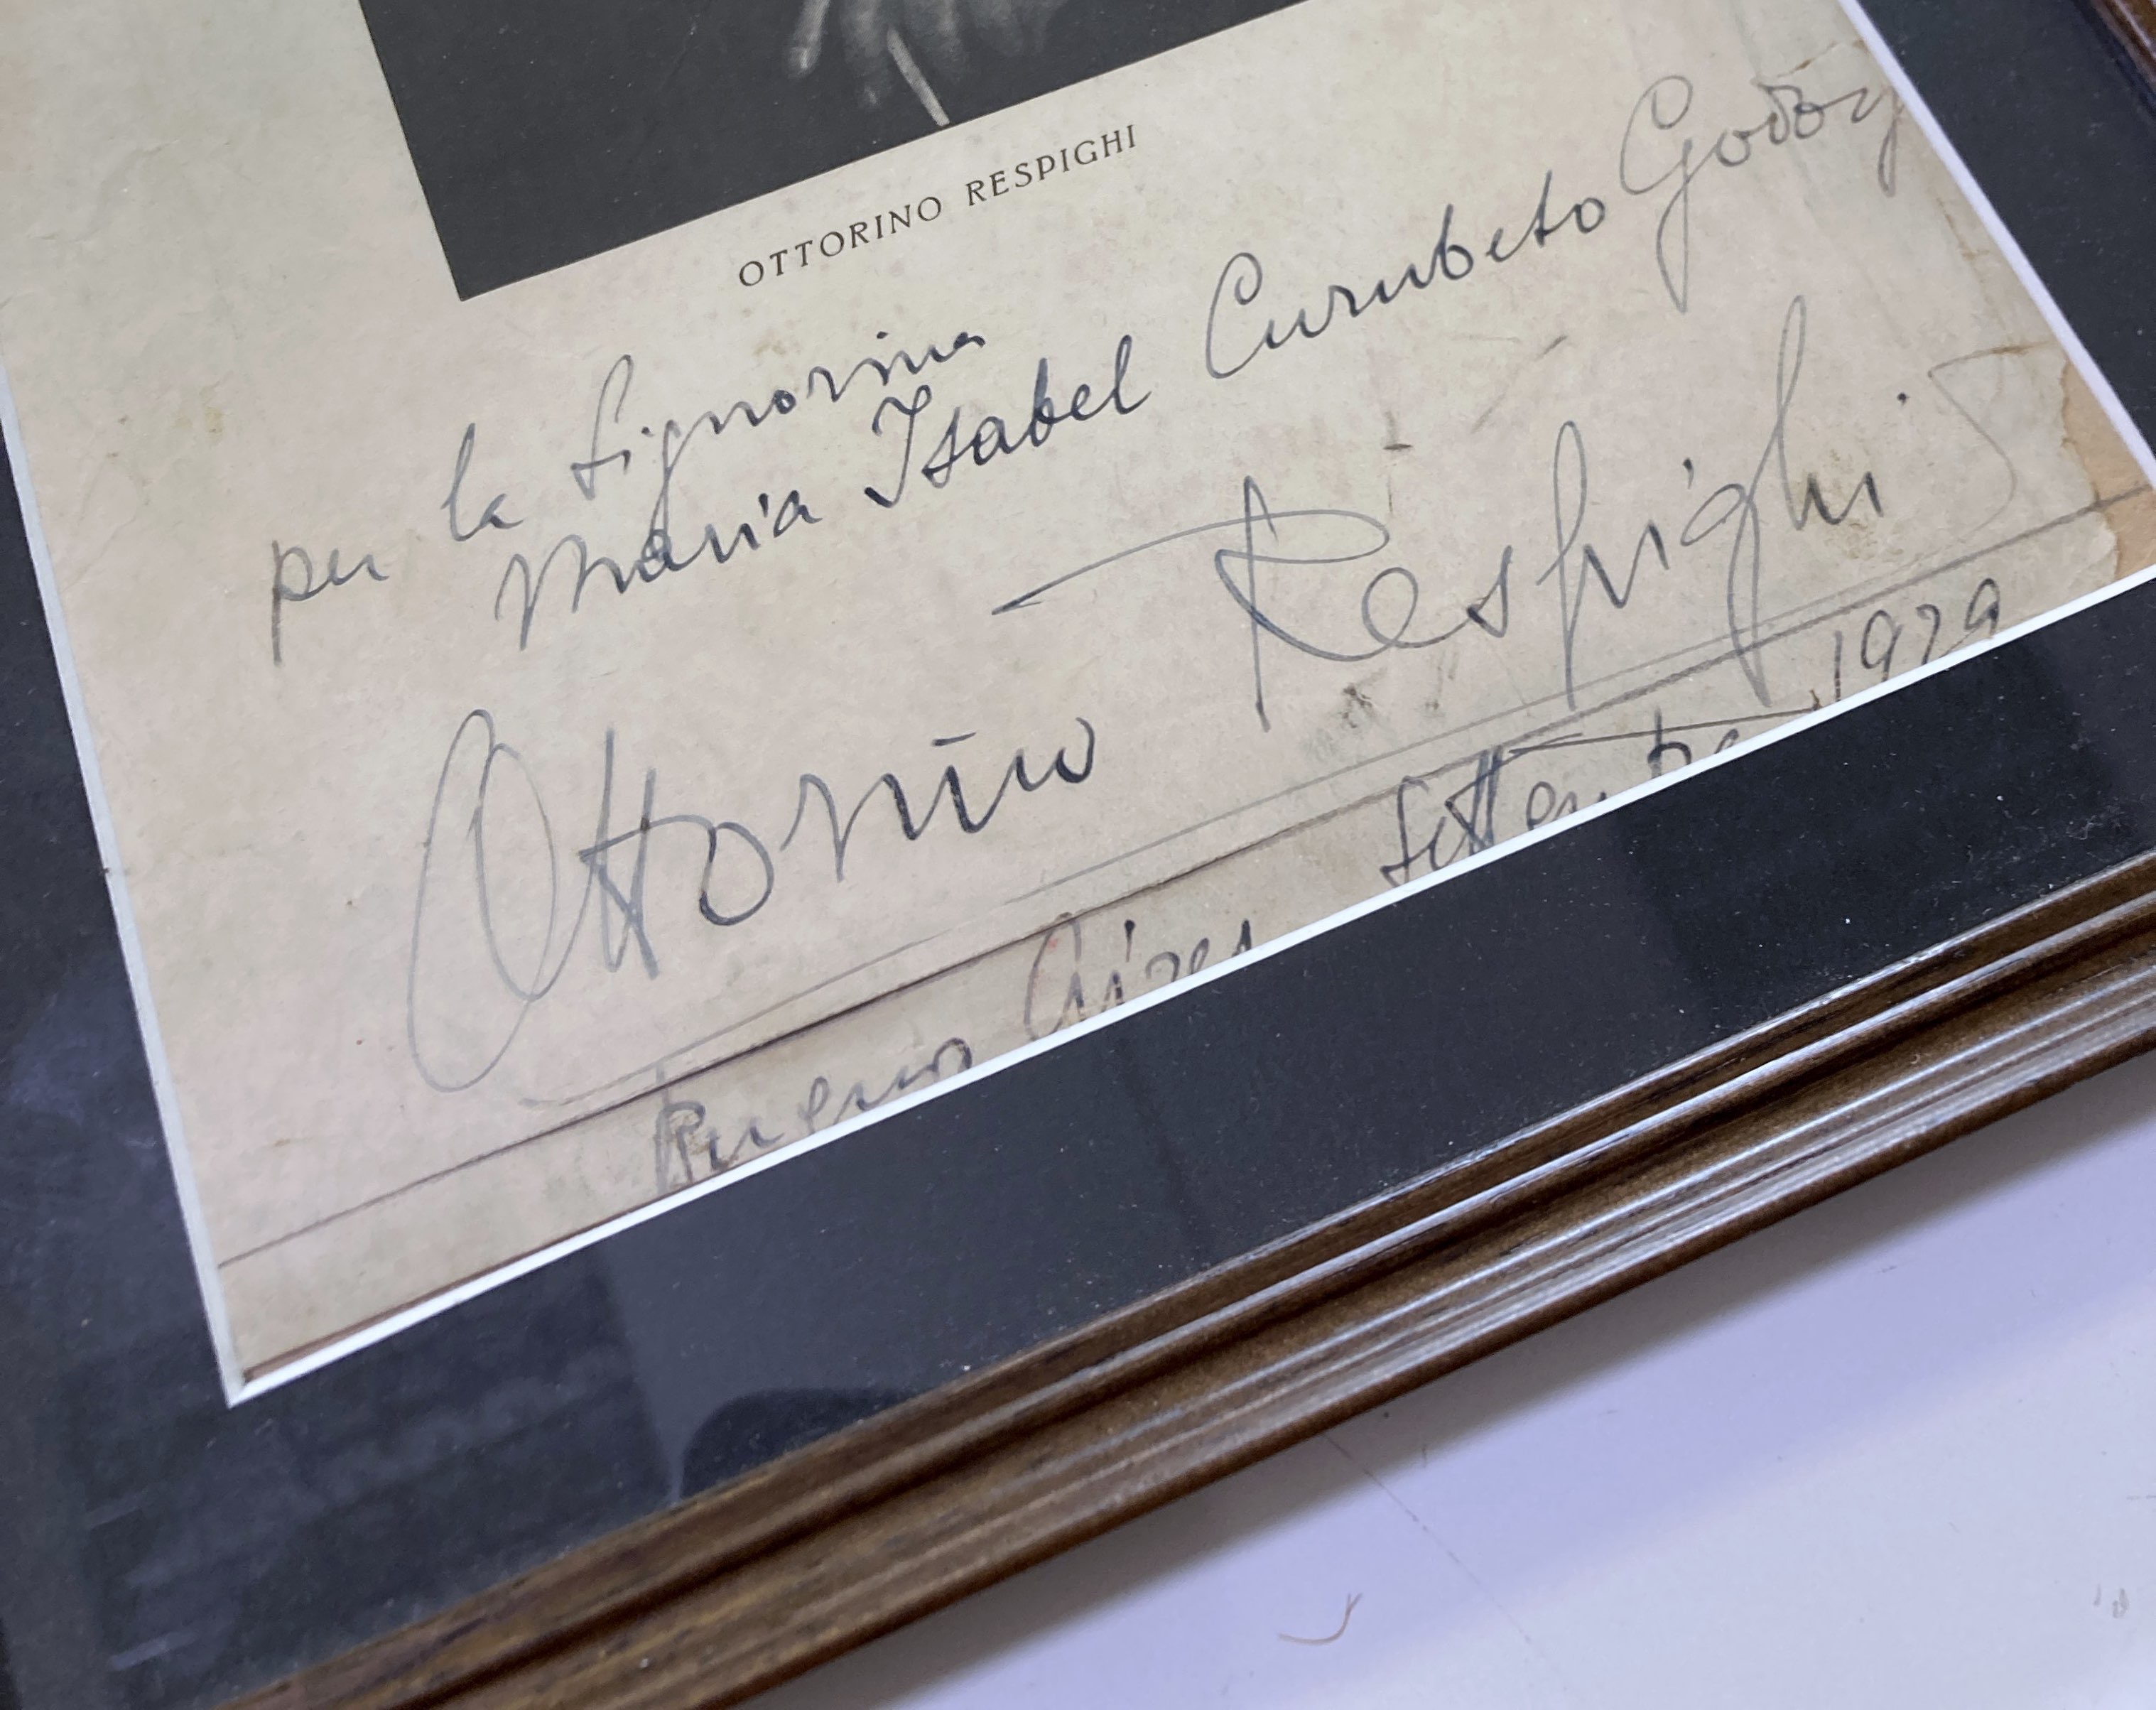 OTTORINO RESPIGHI
per la Signorina
Maria Isabel Curubeto Godoy
Ottorino Respighi
Buenos Aires Settembre 1929